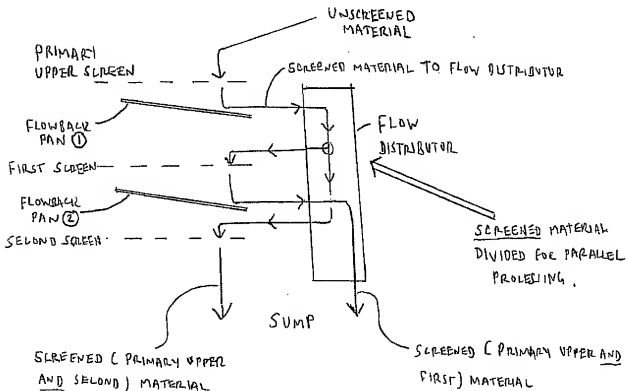 UNSCREENED
MATERIAL
PRIMARY
UPPER SCREEN
SCREENED MATERIAL TO FLOW DISTRIBUTOR
FLOWBACK
PAN ①
FLOW
DISTRIBUTOR
FIRST SCREEN
FLOWBACK
PAN ②
SECOND SCREEN
SCREENED MATERIAL
DIVIDED FOR PARALLEL
PROCESSING.
SUMP
SCREENED (PRIMARY UPPER
AND SECOND) MATERIAL
SCREENED (PRIMARY UPPER AND
FIRST) MATERIAL